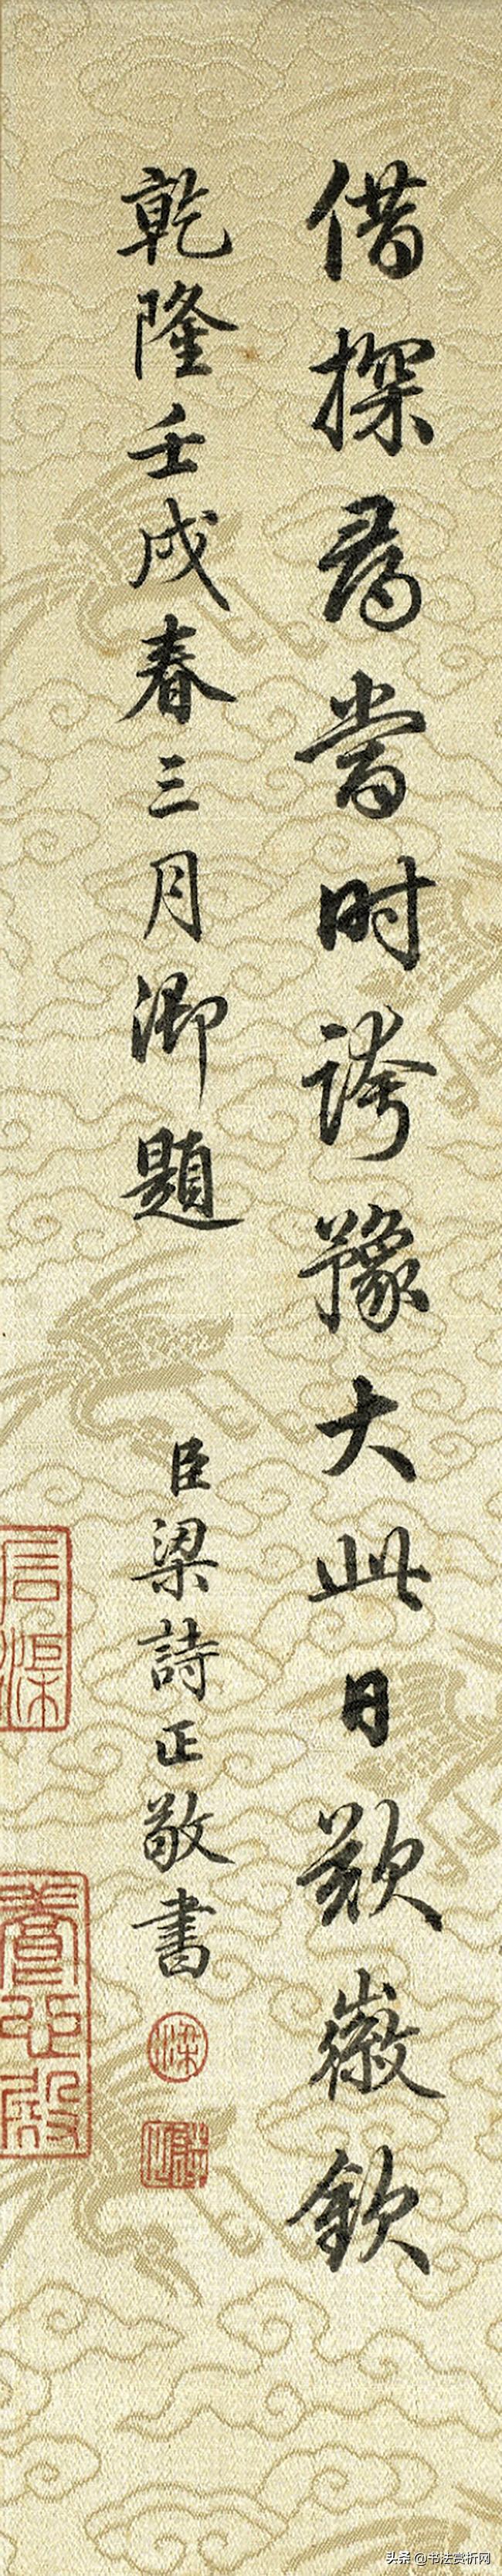 借探尋當時誇豫大此日歎徽欽
乾隆壬戌春三月御題
臣梁詩正敬書
梁
養心殿
头条 @书法赏析网